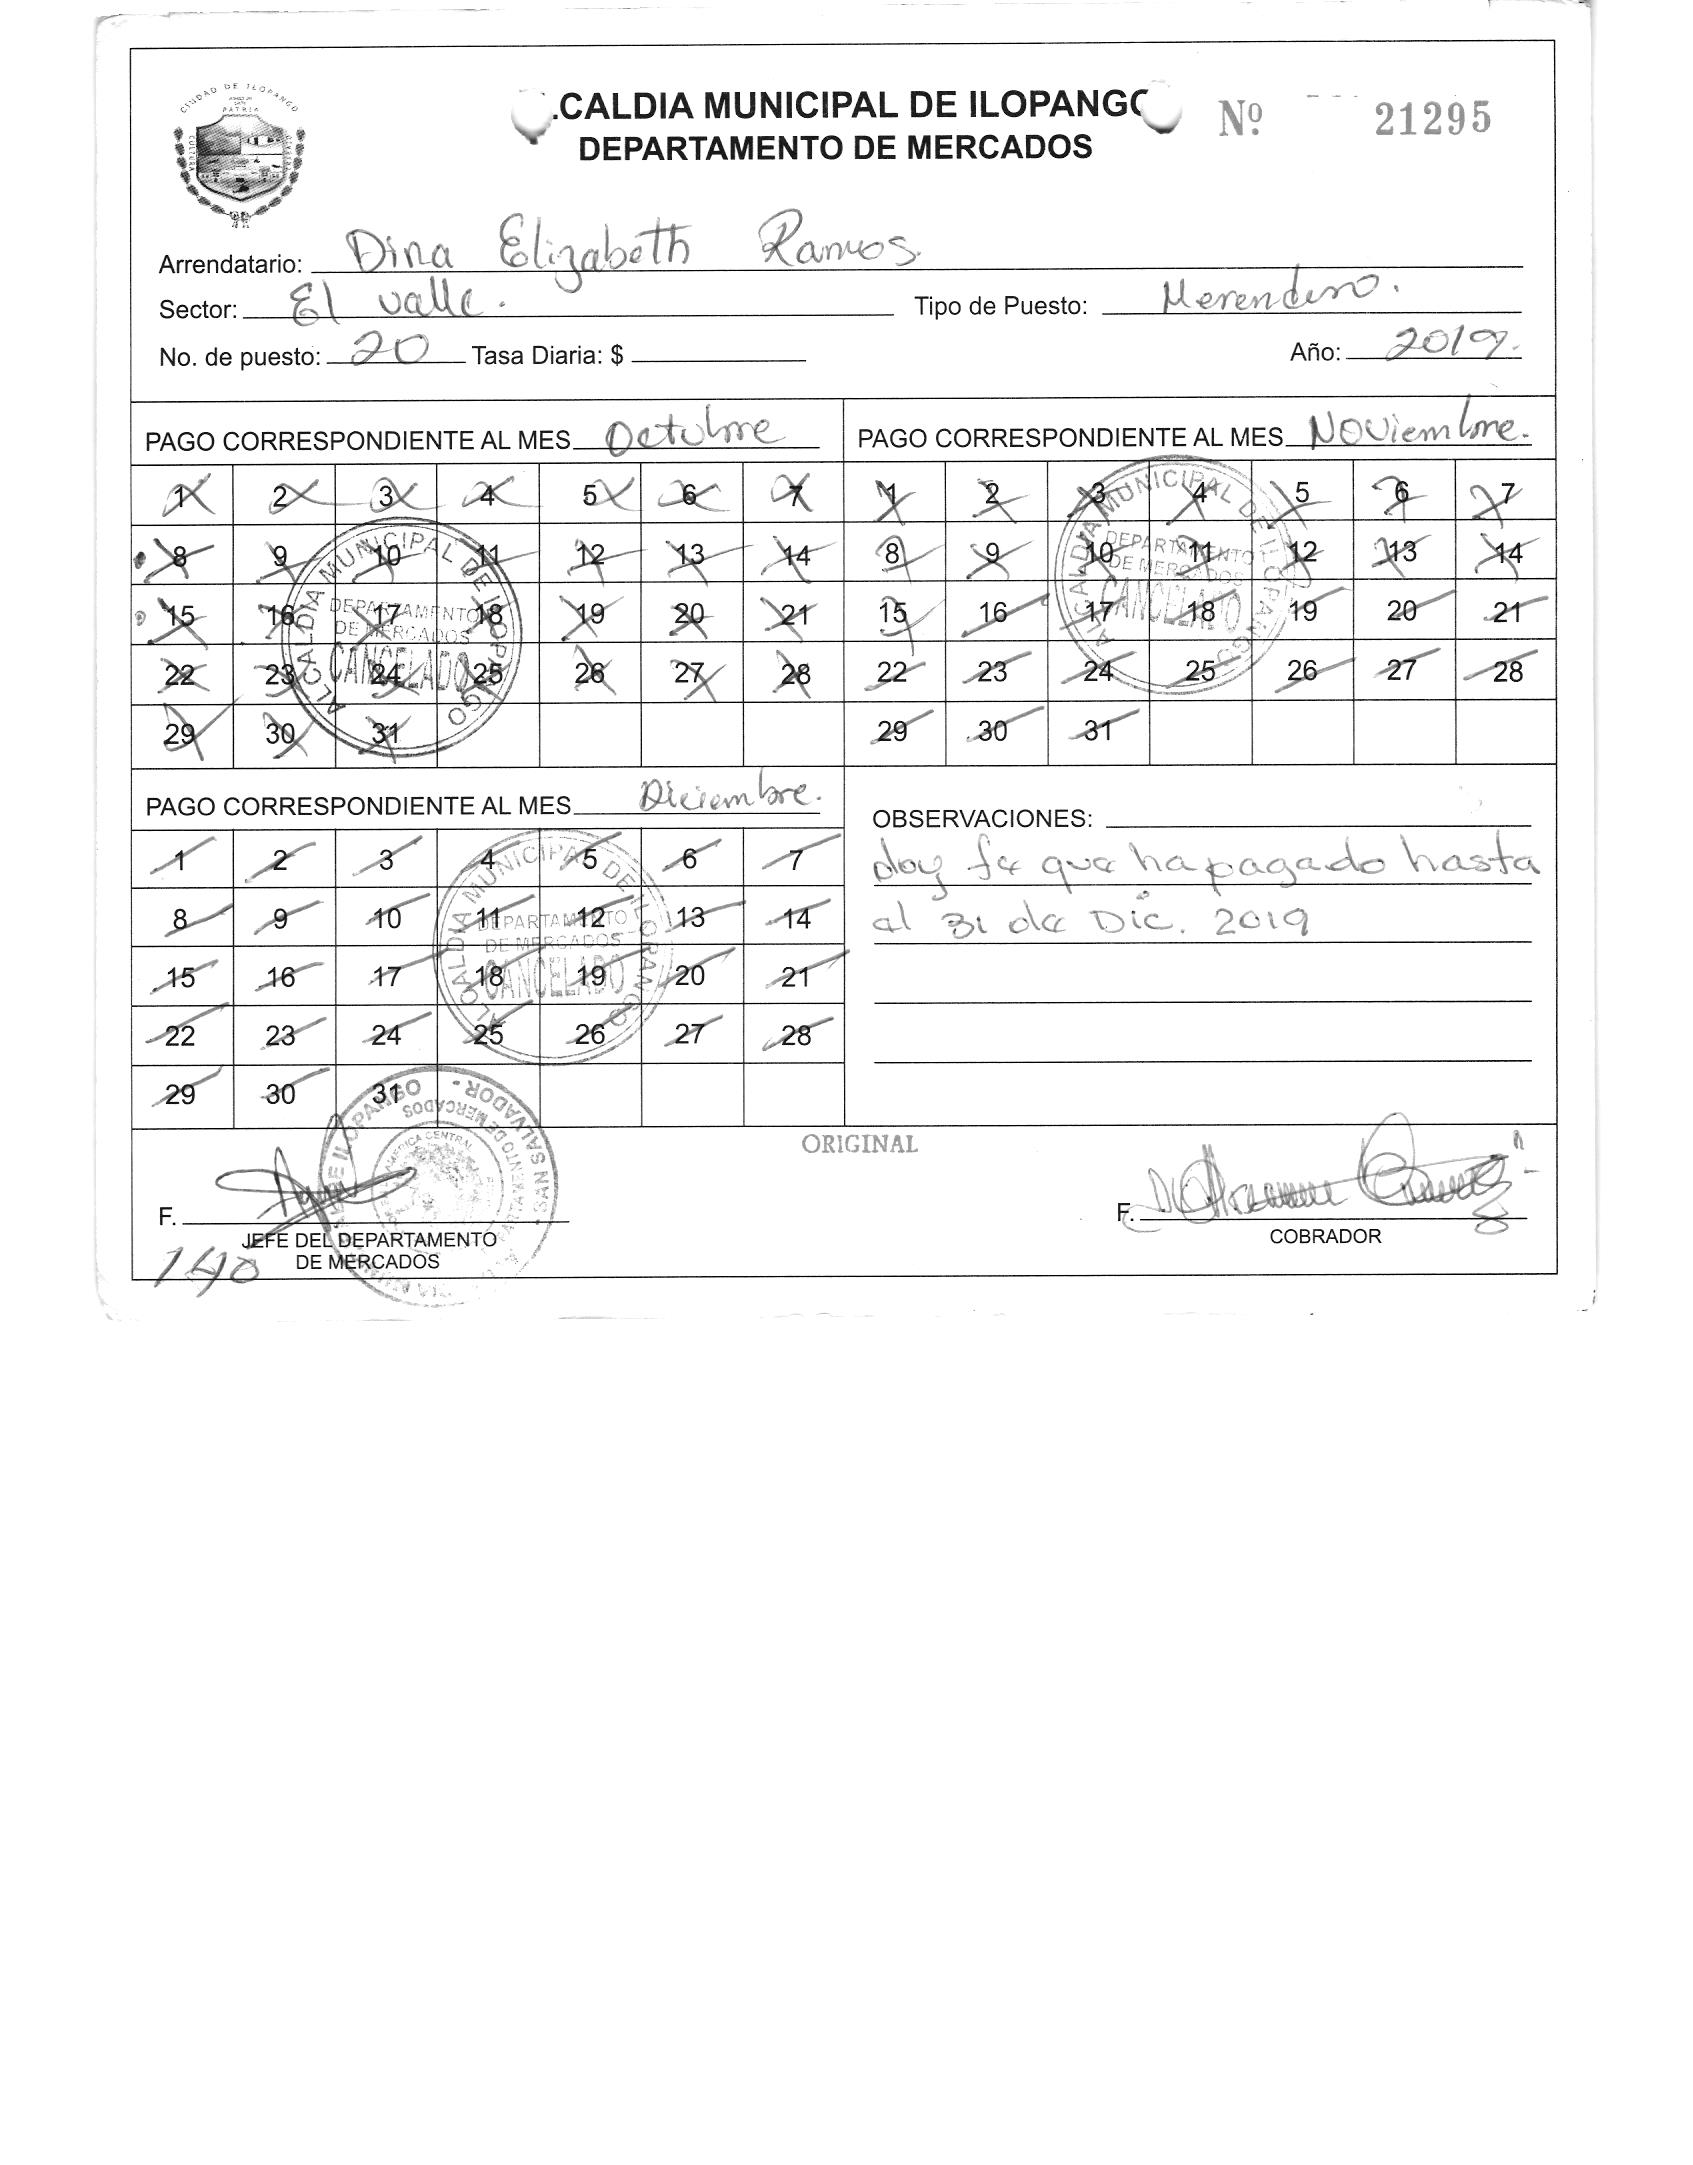 CIUDAD DE ILOPANGO
.CALDIA MUNICIPAL DE ILOPANGO
Nº 21295
DEPARTAMENTO DE MERCADOS
Arrendatario: Dina Elizabeth Ramos.
Sector: El valle. Tipo de Puesto: Merendero.
No. de puesto: 20 Tasa Diaria: $ Año: 2019.
PAGO CORRESPONDIENTE AL MES Octubre
1 2 3 4 5 6 7
8 9 10 11 12 13 14
15 16 17 18 19 20 21
22 23 24 25 26 27 28
29 30 31
ALCALDIA MUNICIPAL DE ILOPANGO
DEPARTAMENTO
DE MERCADOS
CANCELADO
PAGO CORRESPONDIENTE AL MES Noviembre.
1 2 3 4 5 6 7
8 9 10 11 12 13 14
15 16 17 18 19 20 21
22 23 24 25 26 27 28
29 30 31
ALCALDIA MUNICIPAL DE ILOPANGO
DEPARTAMENTO
DE MERCADOS
CANCELADO
PAGO CORRESPONDIENTE AL MES Diciembre.
1 2 3 4 5 6 7
8 9 10 11 12 13 14
15 16 17 18 19 20 21
22 23 24 25 26 27 28
29 30 31
ALCALDIA MUNICIPAL DE ILOPANGO
DEPARTAMENTO
DE MERCADOS
CANCELADO
OBSERVACIONES:
doy fe que ha pagado hasta
al 31 de Dic. 2019
ORIGINAL
F.
JEFE DEL DEPARTAMENTO
DE MERCADOS
DE ILOPANGO
SAN SALVADOR
DEPARTAMENTO DE MERCADOS
AMERICA CENTRAL
F.
COBRADOR